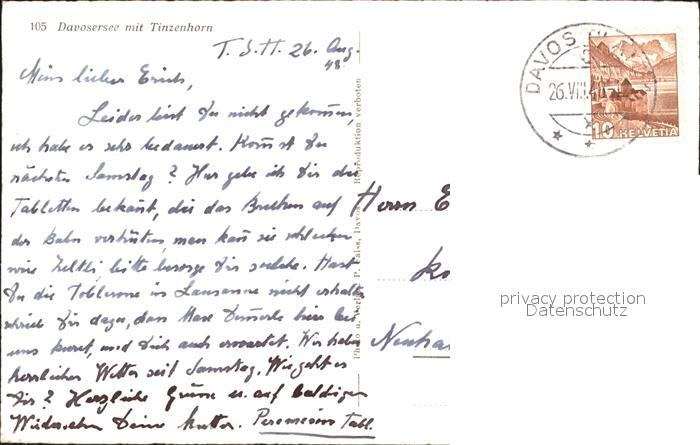 105 Davosersee mit Tinzenhorn
T. S. H. 26. Aug. 48
Mein lieber Erich,
Leider bist Du nicht gekommen,
ich habe es sehr bedauert. Kommst Du
nächsten Samstag? Hier gebe ich Dir die
Tabletten bekannt, die das Brechen auf
der Bahn verhüten, man kann sie schlucken
wie Zeltli, bitte besorge Dir solche. Hast
Du die Toblerone in Lausanne nicht erhalten
schreib Dir dazu, dass Max hier bei
uns kurt, und Dich auch erwartet. Wir haben
herrliches Wetter seit Samstag. Wie geht es
Dir? Herzliche Grüsse u. auf baldiges
Wiedersehen Deine Mutter. Peremesin Tabl.
Photo u. Verlag P. Faiss, Davos
Reproduktion verboten
DAVOS
26.VIII.
10 HELVETIA
Herrn E
Neuhau
privacy protection
Datenschutz